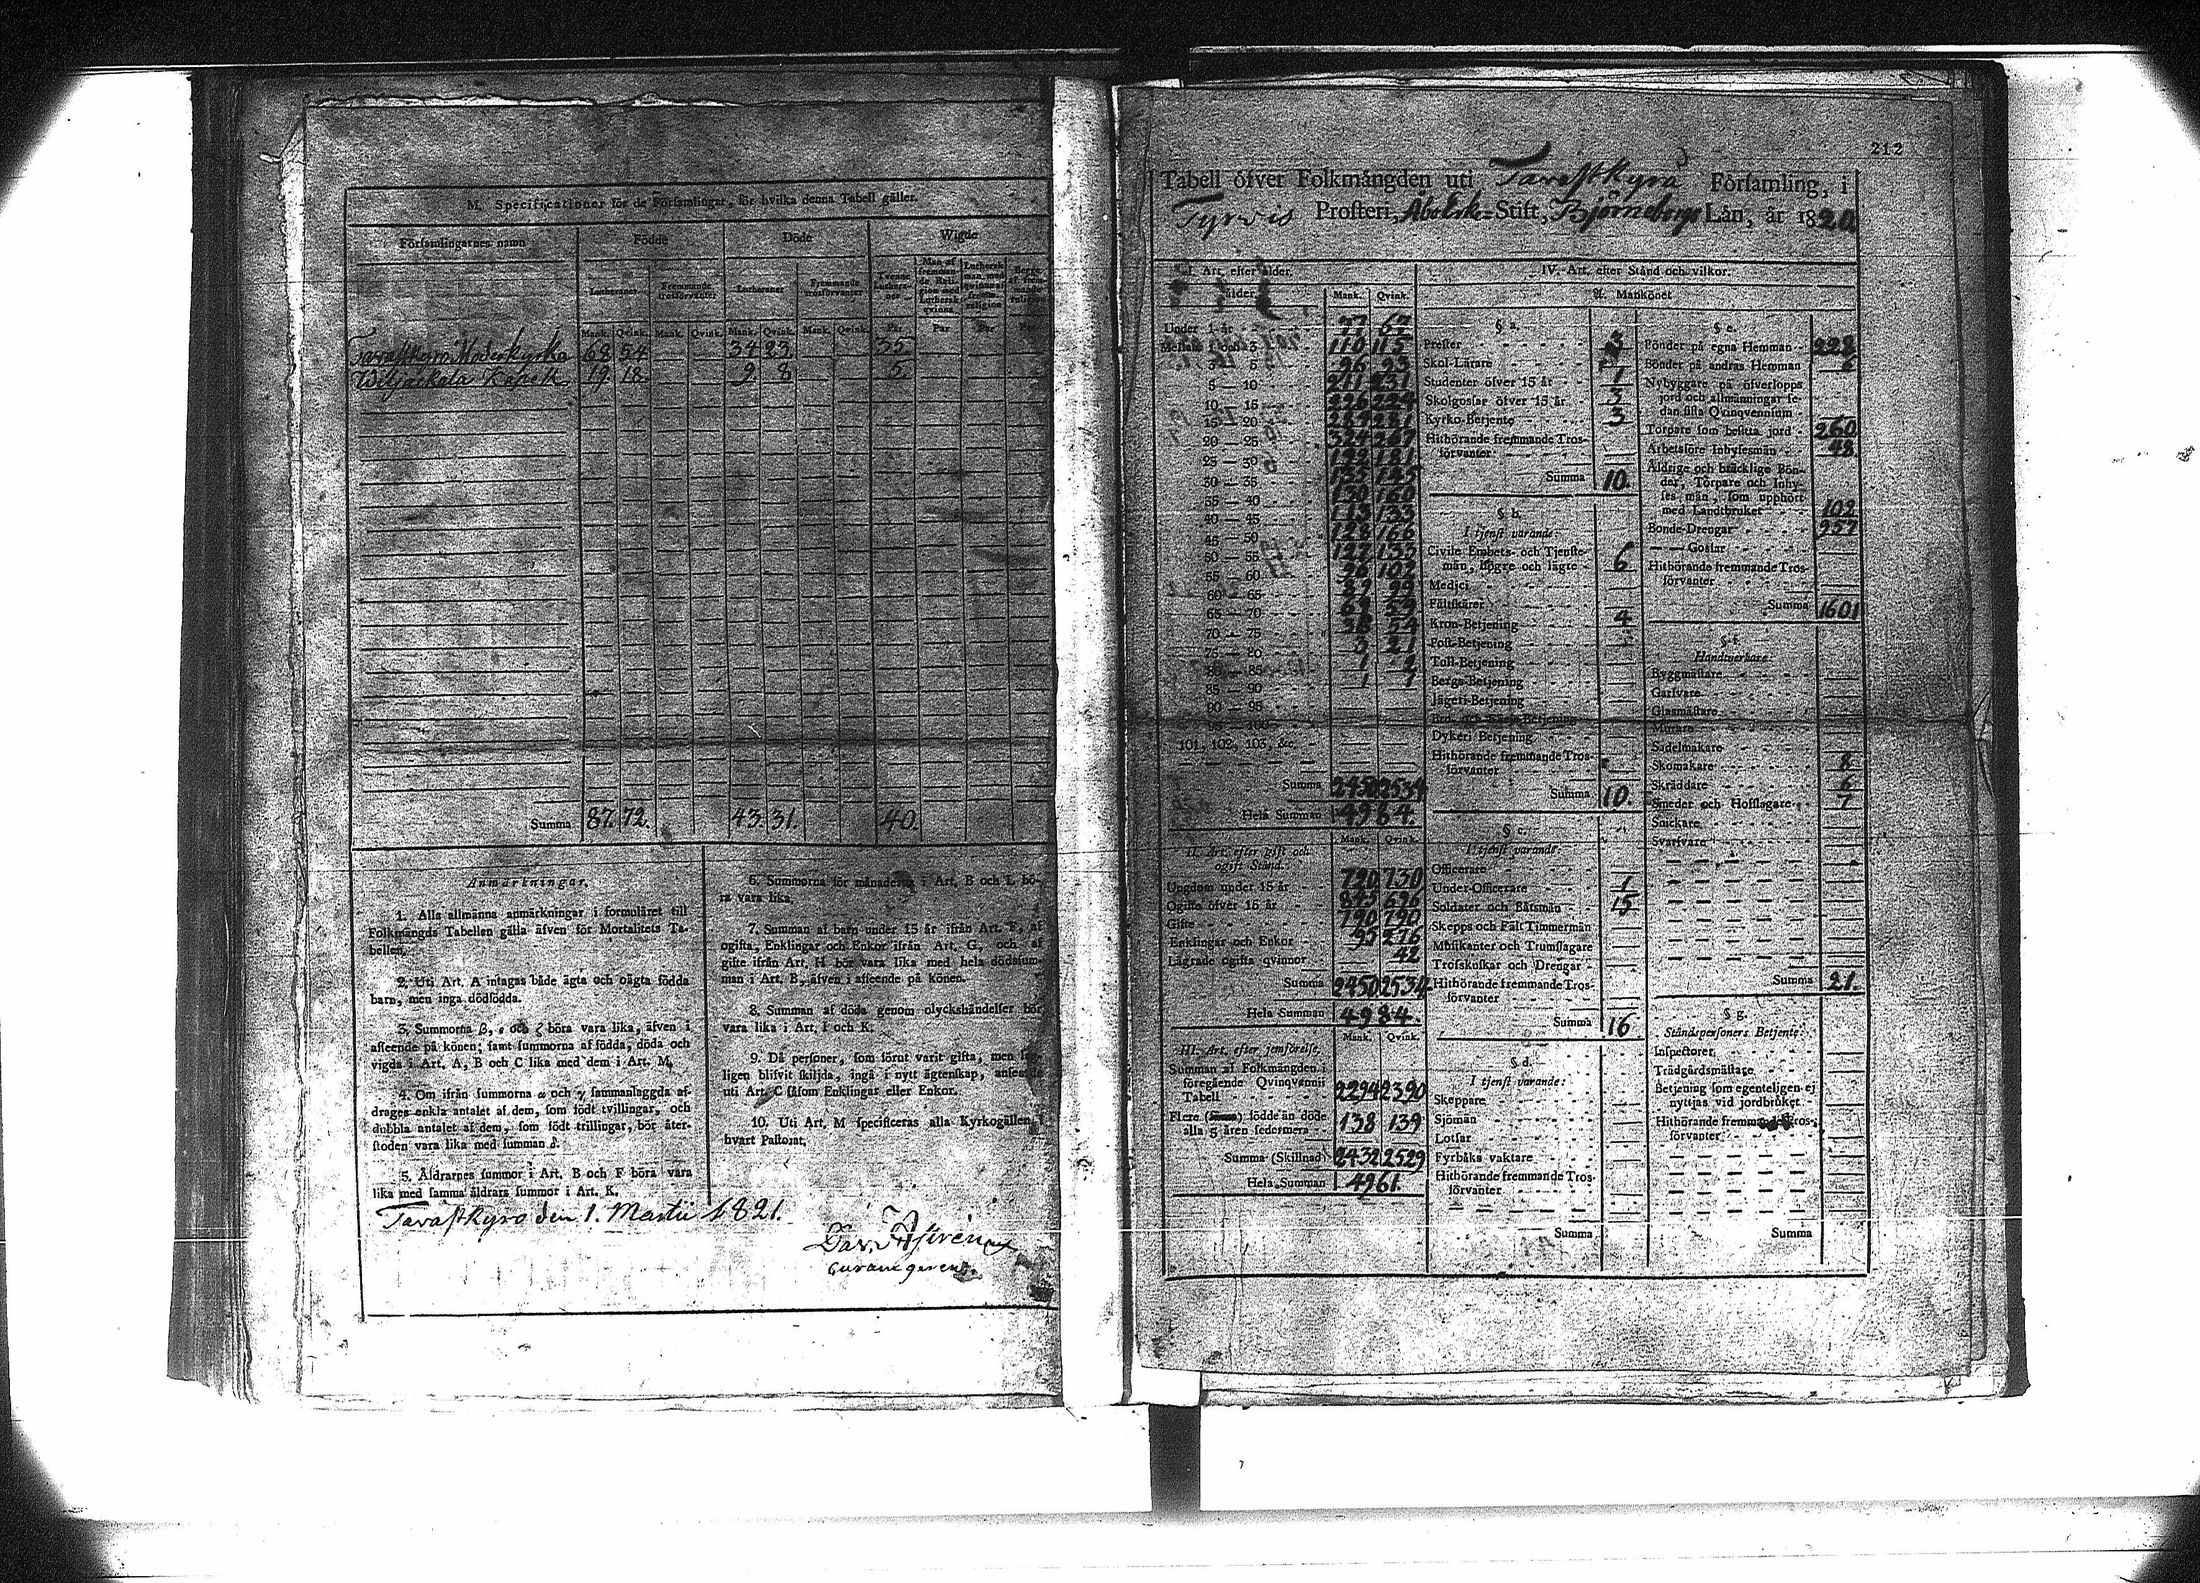 M. Specificationer för de Församlingar, för hvilka denna Tabell gäller.
Församlingarnes namn Födde Döde Wigde
Lutheraner Fremmande trosförvanter Lutheraner Fremmande trosförvanter
Mank. Qvink. Mank. Qvink. Mank. Qvink. Mank. Qvink. Par Par Par
Tavastkyro Moderkyrka 68 54 34 23 35
Wiljackala Kapell 19 18 9 8 5
Summa 87. 72. 43. 31. 40.
Anmärkningar.
1. Alla allmänna anmärkningar i formuläret till
Folkmängds Tabellen gälla äfven för Mortalitets Ta-
bellen.
2. Uti Art. A intagas både ägta och oägta födda
barn, men inga dödfödda.
3. Summorna β, ε och ζ böra vara lika, äfven i
afseende på könen; samt summorna af födda, döda och
vigda i Art. A, B och C lika med dem i Art. M.
4. Om ifrån summorna α och γ sammanlaggda af-
drages enkla antalet af dem, som födt tvillingar, och
dubbla antalet af dem, som födt trillingar, bör åter-
stoden vara lika med summan δ.
5. Åldrarnes summor i Art. B och F böra vara
lika med samma åldrars summor i Art. K.
6. Summorna för månaderna i Art. B och L bö-
ra vara lika.
7. Summan af barn under 15 år ifrån Art. F, af
ogifta, Enklingar och Enkor ifrån Art. G, och af
gifte ifrån Art. H bör vara lika med hela dödssum-
man i Art. B, äfven i afseende på könen.
8. Summan af döda genom olyckshändelser bör
vara lika i Art. I och K.
9. Då personer, som förut varit gifta, men
ligen blifvit skiljda, ingå i nytt ägtenskap,
uti Art. C såsom Enklingar eller Enkor.
10. Uti Art. M specificeras alla Kyrkogällen i
hvart Pastorat.
Tavastkyro den 1. Martii 1821.
212
Tabell öfver Folkmängden uti Tavastkyrå Församling, i
Tyrvis Prosteri, Åbolske Stift, Björneborgs Län, år 1820
I. Art. efter ålder.
Ålder. Mank. Qvink.
Under 1 år 77 67
Mellan 1 och 3 110 115
3 — 5 96 93
5 — 10 211 231
10 — 15 226 224
15 — 20 284 281
20 — 25 324 267
25 — 30 192 181
30 — 35 155 145
35 — 40 130 160
40 — 45 113 133
45 — 50 128 166
50 — 55 127 133
55 — 60 96 102
60 — 65 89 99
65 — 70 69 59
70 — 75 38 54
75 — 80 21
80 — 85 1 2
85 — 90 1 1
90 — 95
95 — 100
101, 102, 103, &c.
Summa 2450 2534
Hela Summan 4984.
II. Art. efter gift och
ogift Stånd.
Mank. Qvink.
Ungdom under 15 år 720 730
Ogifte öfver 15 år 845 696
Gifte 790 790
Enklingar och Enkor 95 276
Lägrade ogifta qvinnor 42
Summa 2450 2534
Hela Summan 4984.
III. Art. efter jemförelse.
Mank. Qvink.
Summan af Folkmängden i
föregående Qvinqvennii
Tabell 2294 2390
Flere födde än döde
alla 5 åren sedermera 138 139
Summa (Skillnad) 2432 2529
Hela Summan 4961.
IV. Art. efter Stånd och vilkor.
A. Mankönet
§ a.
Prester 3
Skol-Lärare
Studenter öfver 15 år 1
Skolgossar öfver 15 år 3
Kyrko-Betjente 3
Hithörande fremmande Tros-
förvanter
Summa 10.
§ b.
I tjenst varande:
Civile Embets- och Tjenste-
män, högre och lägre 6
Medici
Fältskärer
Kron-Betjening 4
Post-Betjening
Tull-Betjening
Bergs-Betjening
Jägeri-Betjening
Dykeri Betjening
Hithörande fremmande Tros-
förvanter
Summa 10.
§ c.
I tjenst varande:
Officerare
Under-Officerare 1
Soldater och Båtsmän 15
Skepps och Fält Timmermän
Musikanter och Trumslagare
Trosskuskar och Drengar
Hithörande fremmande Tros-
förvanter
Summa 16
§ d.
I tjenst varande:
Skeppare
Sjömän
Lotsar
Fyrbåks vaktare
Hithörande fremmande Tros-
förvanter
Summa
§ e.
Bönder på egna Hemman 228
Bönder på andras Hemman 6
Nybyggare på öfverlopps
jord och allmänningar se-
dan sista Qvinqvennium
Torpare som besitta jord 260
Arbetsföre Inhysesmän 48
Åldrige och bräcklige Bön-
der, Torpare och Inhy-
ses män, som upphört
med Landtbruket 102
Bonde-Drengar 257
— — Gossar
Hithörande fremmande Tros-
förvanter
Summa 1601
§ f.
Handtverkare
Byggmästare
Garfvare
Glasmästare
Murare
Sadelmakare
Skomakare 8
Skräddare 6
Smeder och Hofslagare 7
Snickare
Svarfvare
Summa 21.
§ g.
Ståndspersoners Betjente:
Inspectorer
Trädgårdsmästare
Betjening som egenteligen ej
nyttjas vid jordbruket
Hithörande fremmande Tros-
förvanter
Summa